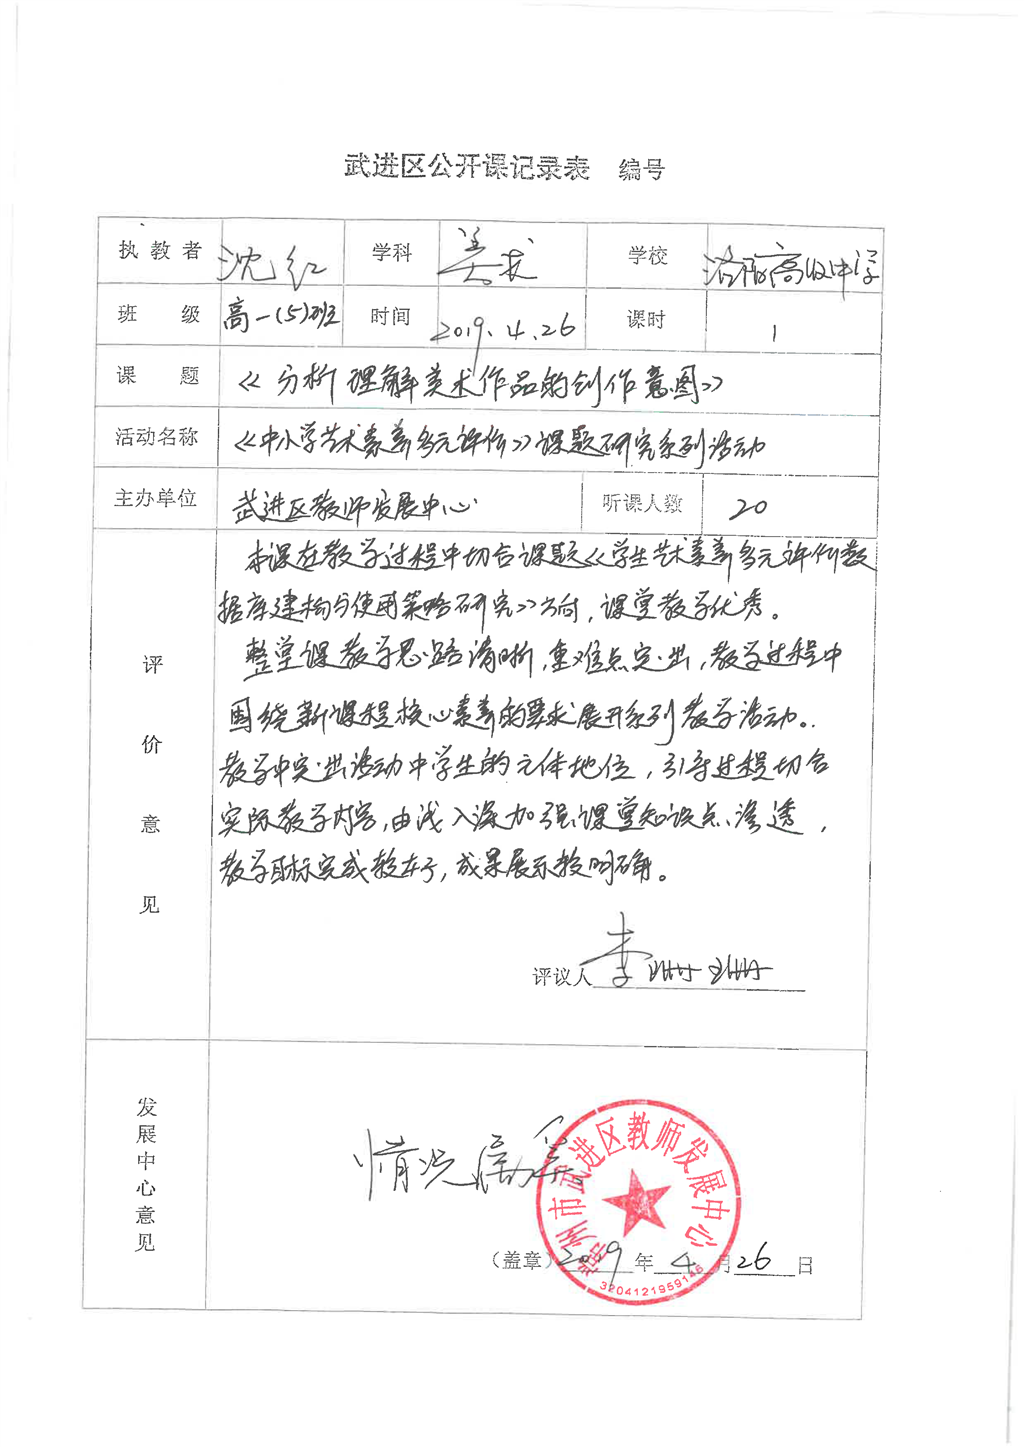 武进区公开课记录表 编号
执教者 沈红 学科 美术 学校 洛阳高级中学
班 级 高一(5)班 时间 2019.4.26 课时 1
课 题 《分析理解美术作品的创作意图》
活动名称 《中小学艺术素养多元评价》课题研究系列活动
主办单位 武进区教师发展中心 听课人数 20
评价意见
本课在教学过程中切合课题《学生艺术素养多元评价数
据库建构与使用策略研究》方向，课堂教学优秀。
整堂课教学思路清晰，重难点突出，教学过程中
围绕新课程核心素养的要求展开系列教学活动。
教学中突出活动中学生的主体地位，引导过程切合
实际教学内容，由浅入深加强课堂知识点渗透，
教学目标完成较好，成果展示较明确。
评议人 李珊珊
发展中心意见
情况属实
(盖章) 2019 年 4 月 26 日
常州市武进区教师发展中心
3204121959146